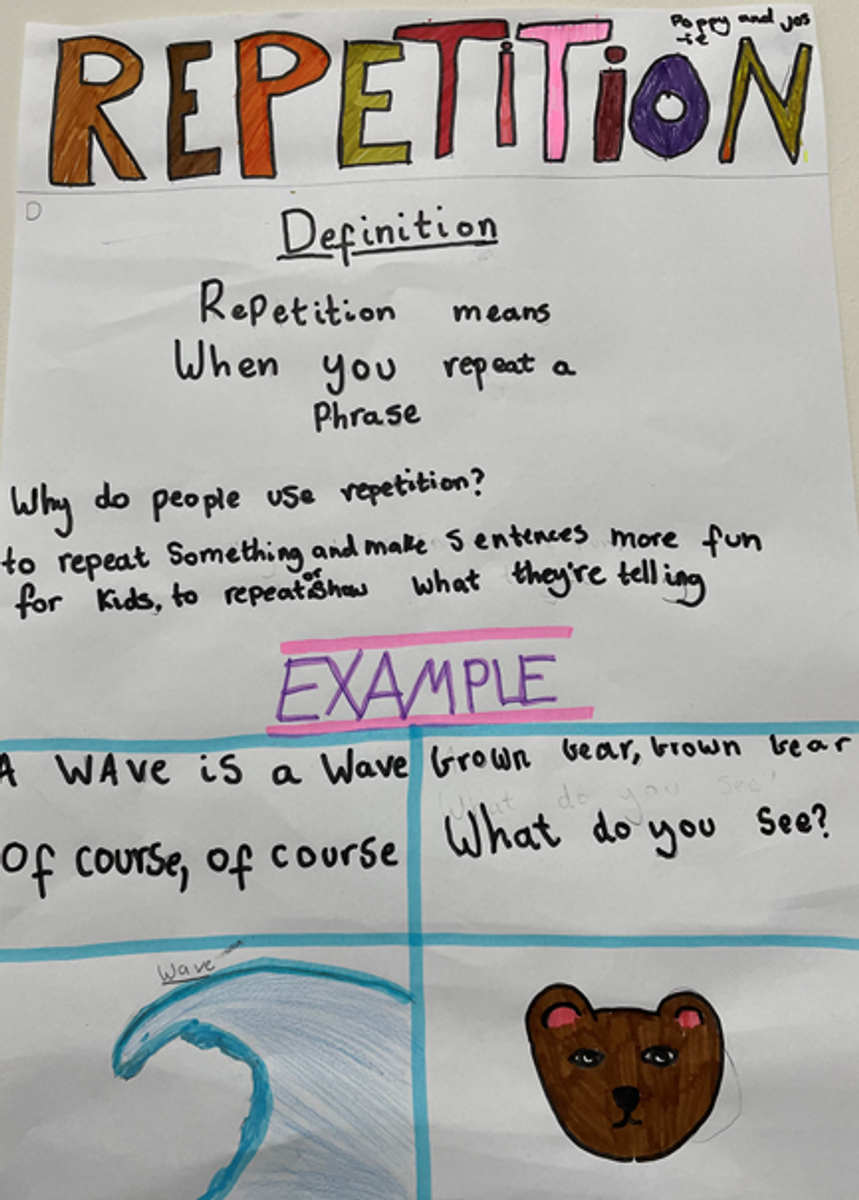 REPETiTiON
Poppy and Jos
-ie
D
Definition
Repetition means
When you repeat a
Phrase
Why do people use repetition?
to repeat Something and make Sentences more fun
for Kids, to repeat or Show what they're telling
EXAMPLE
A WAve is a Wave
Of course, of course
brown bear, brown bear
'What do you see?'
What do you See?
Wave